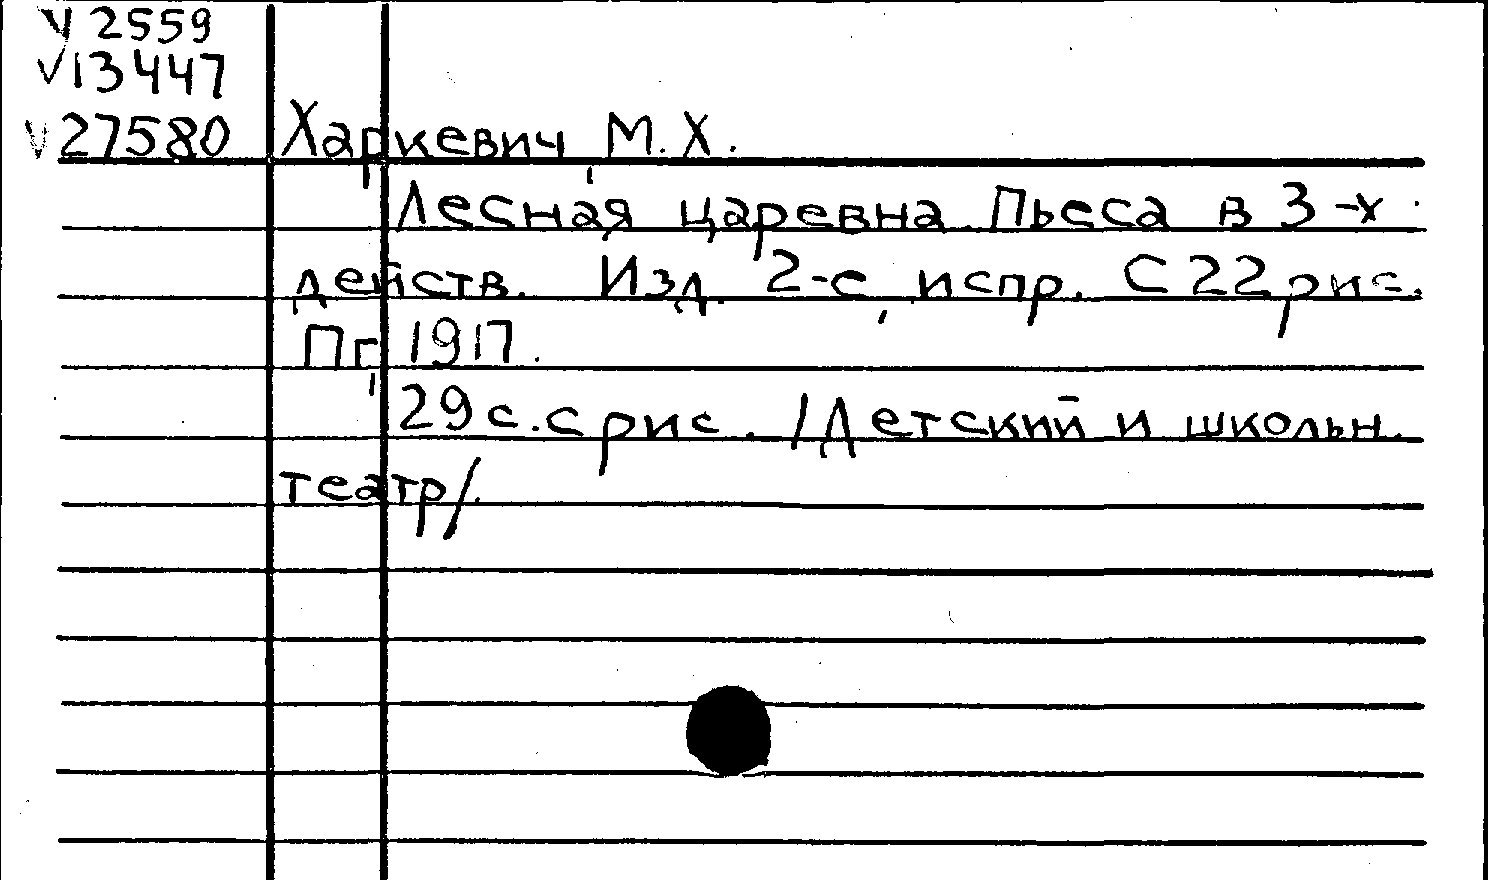 V 2559
V 13447
V 27580 Харкевич, М. Х.
Лесная царевна. Пьеса в 3-х
действ. Изд. 2-е, испр. С 22 рис.
Пг, 1917.
29 с. с рис. /Детский и школьн.
театр/.